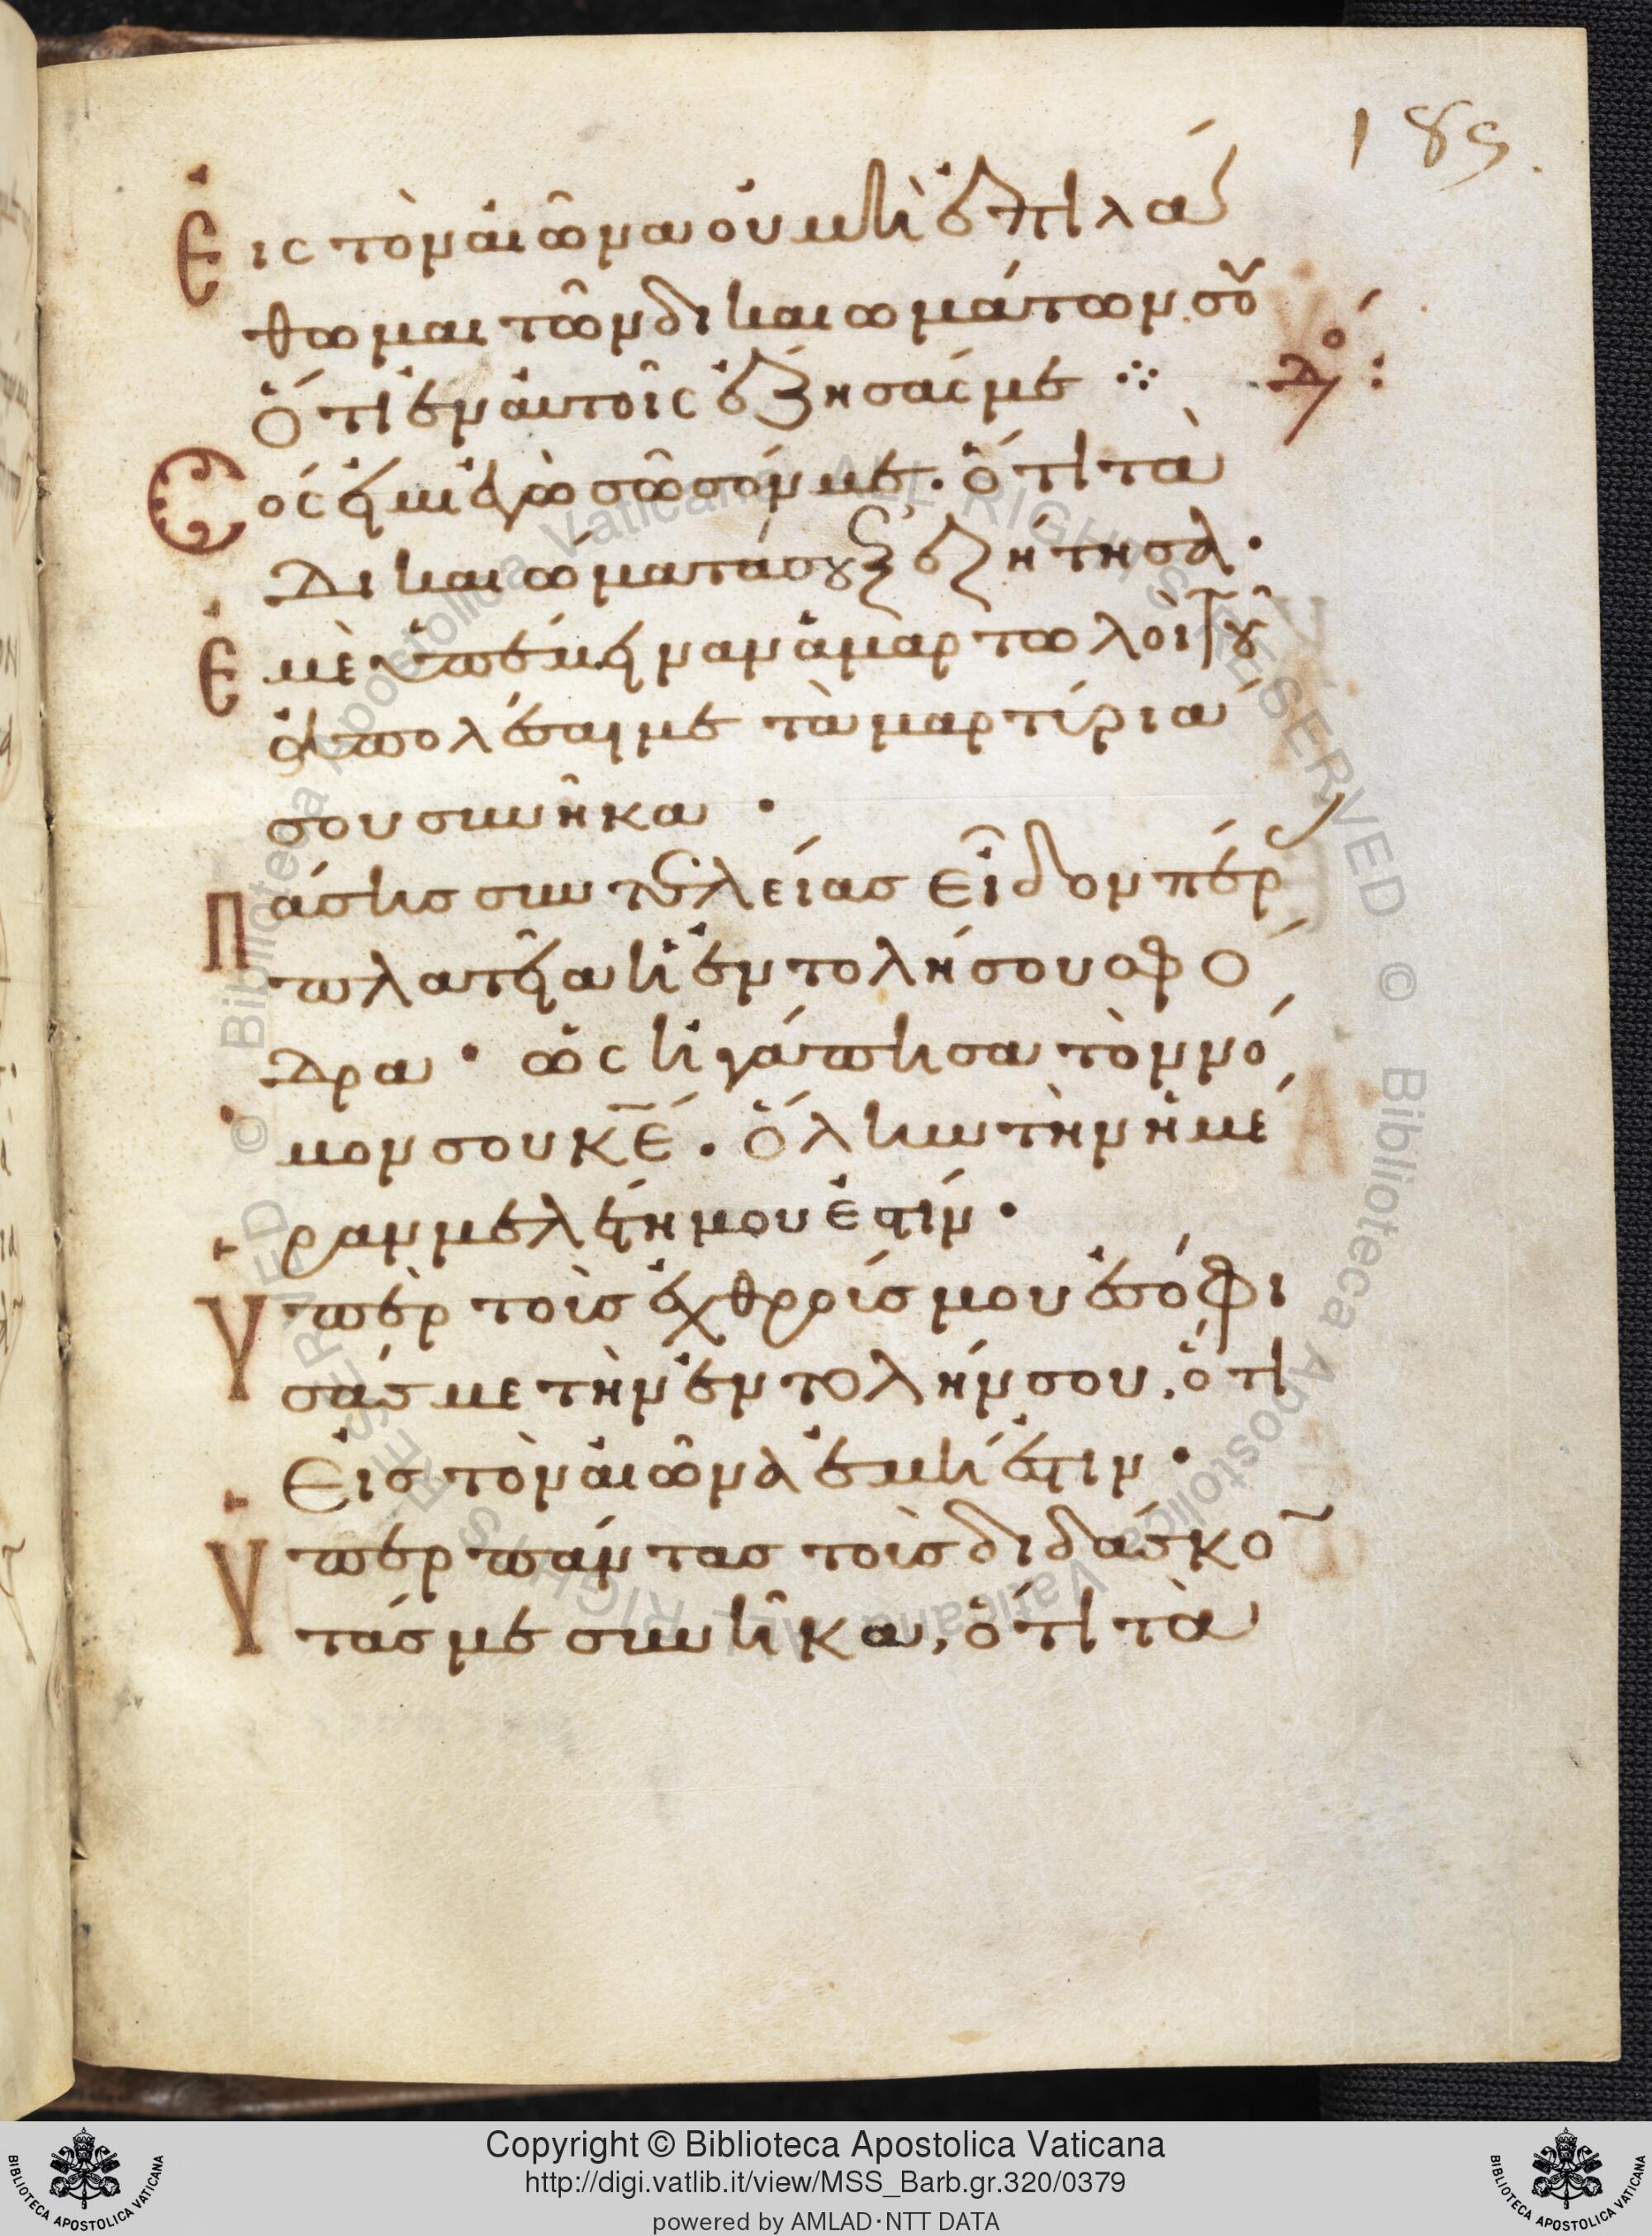 189.
Εἰς τὸν αἰῶνα οὐ μὴ ἐπιλά
θωμαι τῶν δικαιωμάτων σου
ὅτι ἐν αὐτοῖς ἔζησάς με ⁘ Δό:
Σός εἰμι ἐγὼ σῶσόν με. ὅτι τὰ
Δικαιώματά σου ἐξεζήτησα·
Ἐμὲ ὑπέμειναν ἁμαρτωλοὶ τοῦ
ἀπολέσαι με τὰ μαρτίριά
σου συνῆκα ·
Πάσης συντελείας εἶδον πέρας
πλατεῖα ἡ ἐντολή σου σφό
Δρα · ὡς ἠγάπησα τὸν νό
μον σου κ̅ε̅. ὅλην τὴν ἡμέ
ραν μελέτη μου ἐστίν ·
Ὑπὲρ τοὺς ἐχθρούς μου ἐσόφι
σάς με τὴν ἐντολήν σου, ὅτι
Εἰς τὸν αἰῶνα ἐμή ἐστιν ·
Ὑπὲρ πάντας τοὺς διδάσκο̅
τάς με συνῆκα, ὅτι τὰ
© Biblioteca Apostolica Vaticana ALL RIGHTS RESERVED © Biblioteca Apostolica Vaticana ALL RIGHTS RESERVED
BIBLIOTECA APOSTOLICA VATICANA
Copyright © Biblioteca Apostolica Vaticana
http://digi.vatlib.it/view/MSS_Barb.gr.320/0379
powered by AMLAD·NTT DATA
BIBLIOTECA APOSTOLICA VATICANA